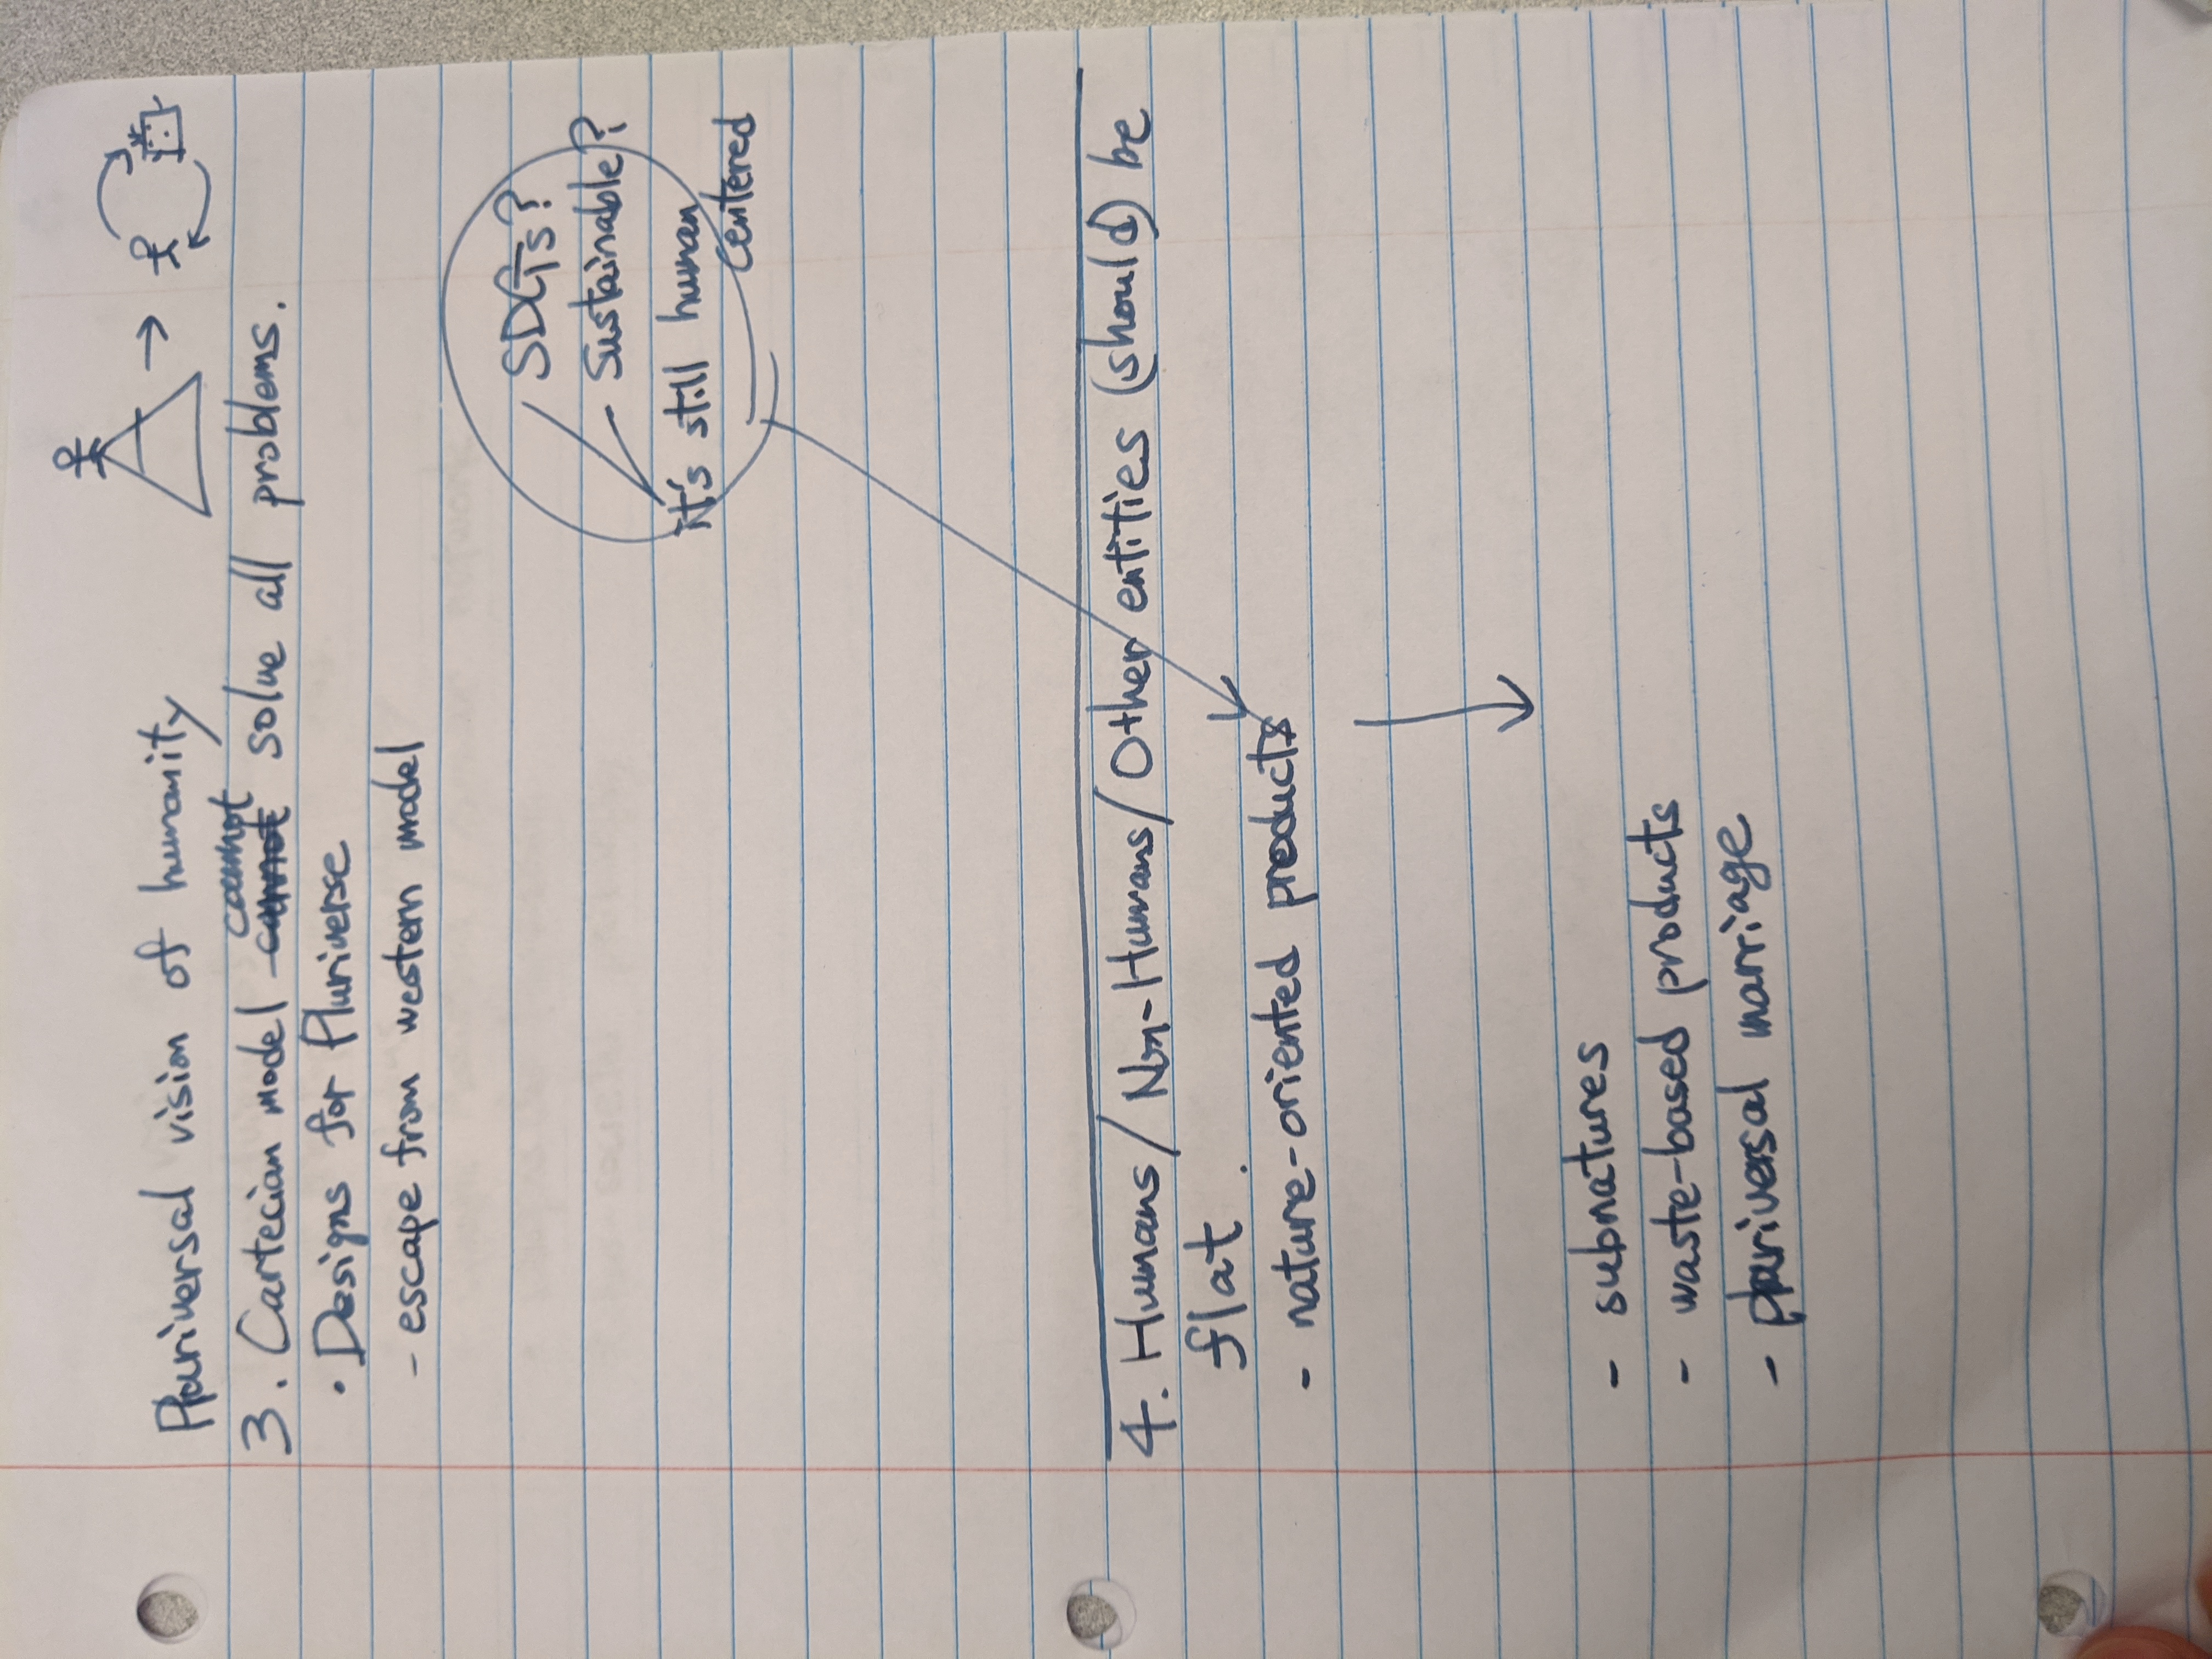 Pluriversal vision of humanity
3. Cartecian model cannot solve all problems.
• Designs for Pluriverse
- escape from western model
SDGs?
Sustainable?
it's still human
centered
4. Humans/Non-Humans/Other entities (should) be
flat.
- nature-oriented products
- subnatures
- waste-based products
- pluriversal marriage